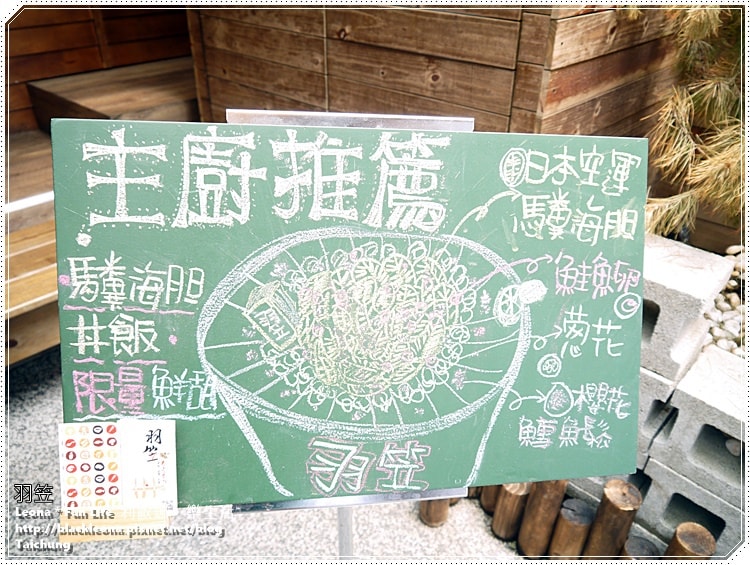 主廚推薦
馬糞海胆
丼飯
限量鮮甜
日本空運
馬糞海胆
鮭魚卵
蔥花
櫻花
鱈魚鬆
羽笠
羽笠
羽笠
Leona * Fun Life
http://blackleona.pixnet.net/blog
Taichung